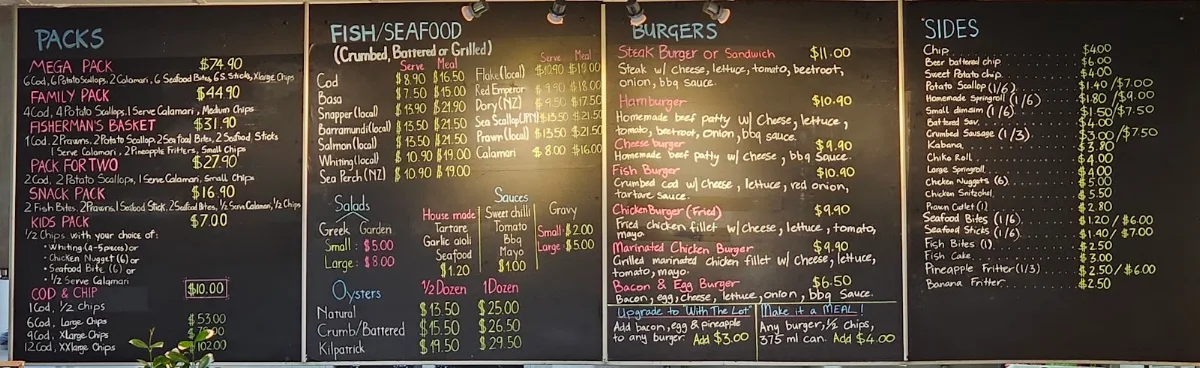 PACKS
MEGA PACK $74.90
6 Cod, 6 Potato Scallops, 2 Calamari, 6 Seafood Bites, 6 S. Sticks, Xlarge Chips
FAMILY PACK $44.90
4 Cod, 4 Potato Scallops, 1 Serve Calamari, Medium Chips
FISHERMAN'S BASKET $31.90
1 Cod, 2 Prawns, 2 Potato Scallop, 2 Sea food Bites, 2 Seafood Sticks
1 Serve Calamari, 2 Pineapple Fritters, Small Chips
PACK FOR TWO $27.90
2 Cod, 2 Potato Scallops, 1 Serve Calamari, Small Chips
SNACK PACK $16.90
2 Fish Bites, 2 Prawns, 1 Seafood Stick, 2 Seafood Bites, 1/2 Serve Calamari, 1/2 Chips
KIDS PACK $7.00
1/2 Chips with your choice of:
• Whiting (4-5 pieces) or
• Chicken Nugget (6) or
• Seafood Bite (6) or
• 1/2 Serve Calamari
COD & CHIP $10.00
1 Cod, 1/2 chips
6 Cod, Large Chips $53.00
9 Cod, XLarge Chips
12 Cod, XXlarge Chips 102.00
FISH/SEAFOOD
(Crumbed, Battered or Grilled)
Serve Meal
Cod $8.90 $16.50
Basa $7.50 $15.00
Snapper (local) $13.90 $21.90
Barramundi (local) $13.50 $21.50
Salmon (local) $13.50 $21.50
Whiting (local) $10.90 $19.00
Sea Perch (NZ) $10.90 $19.00
Serve Meal
Flake (local) $10.90 $19.00
Red Emperor $9.90 $18.00
Dory (NZ) $9.50 $17.50
Sea Scallop (JPN) $13.50 $21.50
Prawn (local) $13.50 $21.50
Calamari $8.00 $16.00
Salads
Greek Garden
Small: $5.00
Large: $8.00
Sauces
House made
Tartare
Garlic aioli
Seafood
$1.20
Sweet chilli
Tomato
Bbq
Mayo
$1.00
Gravy
Small: $2.00
Large: $5.00
Oysters 1/2 Dozen 1 Dozen
Natural $13.50 $25.00
Crumb/Battered $15.50 $26.50
Kilpatrick $19.50 $29.50
BURGERS
Steak Burger or Sandwich $11.00
Steak w/ cheese, lettuce, tomato, beetroot,
onion, bbq sauce.
Hamburger $10.90
Homemade beef patty w/ cheese, lettuce,
tomato, beetroot, onion, bbq sauce.
Cheese burger $9.90
Homemade beef patty w/ cheese, bbq Sauce.
Fish Burger $10.90
Crumbed cod w/ cheese, lettuce, red onion,
tartare sauce.
Chicken Burger (Fried) $9.90
Fried chicken fillet w/ cheese, lettuce, tomato,
mayo.
Marinated Chicken Burger $9.90
Grilled marinated chicken fillet w/ cheese, lettuce,
tomato, mayo.
Bacon & Egg Burger $6.50
Bacon, egg, cheese, lettuce, onion, bbq Sauce.
Upgrade to "With The Lot"
Add bacon, egg & pineapple
to any burger. Add $3.00
Make it a MEAL!
Any burger, 1/2 chips,
375 ml can. Add $4.00
SIDES
Chip $4.00
Beer battered chip $6.00
Sweet Potato chip $4.00
Potato Scallop (1/6) $1.40/$7.00
Homemade Springroll (1/6) $1.80/$9.00
Small dimsim (1/6) $1.50/$7.50
Battered Sav. $4.00
Crumbed Sausage (1/3) $3.00/$7.50
Kabana $3.80
Chiko Roll $4.00
Large Springroll $4.00
Chicken Nuggets (6) $5.00
Chicken Schnitzel $5.50
Prawn Cutlet (1) $2.80
Seafood Bites (1/6) $1.20/$6.00
Seafood Sticks (1/6) $1.40/$7.00
Fish Bites (1) $2.50
Fish Cake $3.00
Pineapple Fritter (1/3) $2.50/$6.00
Banana Fritter $2.50